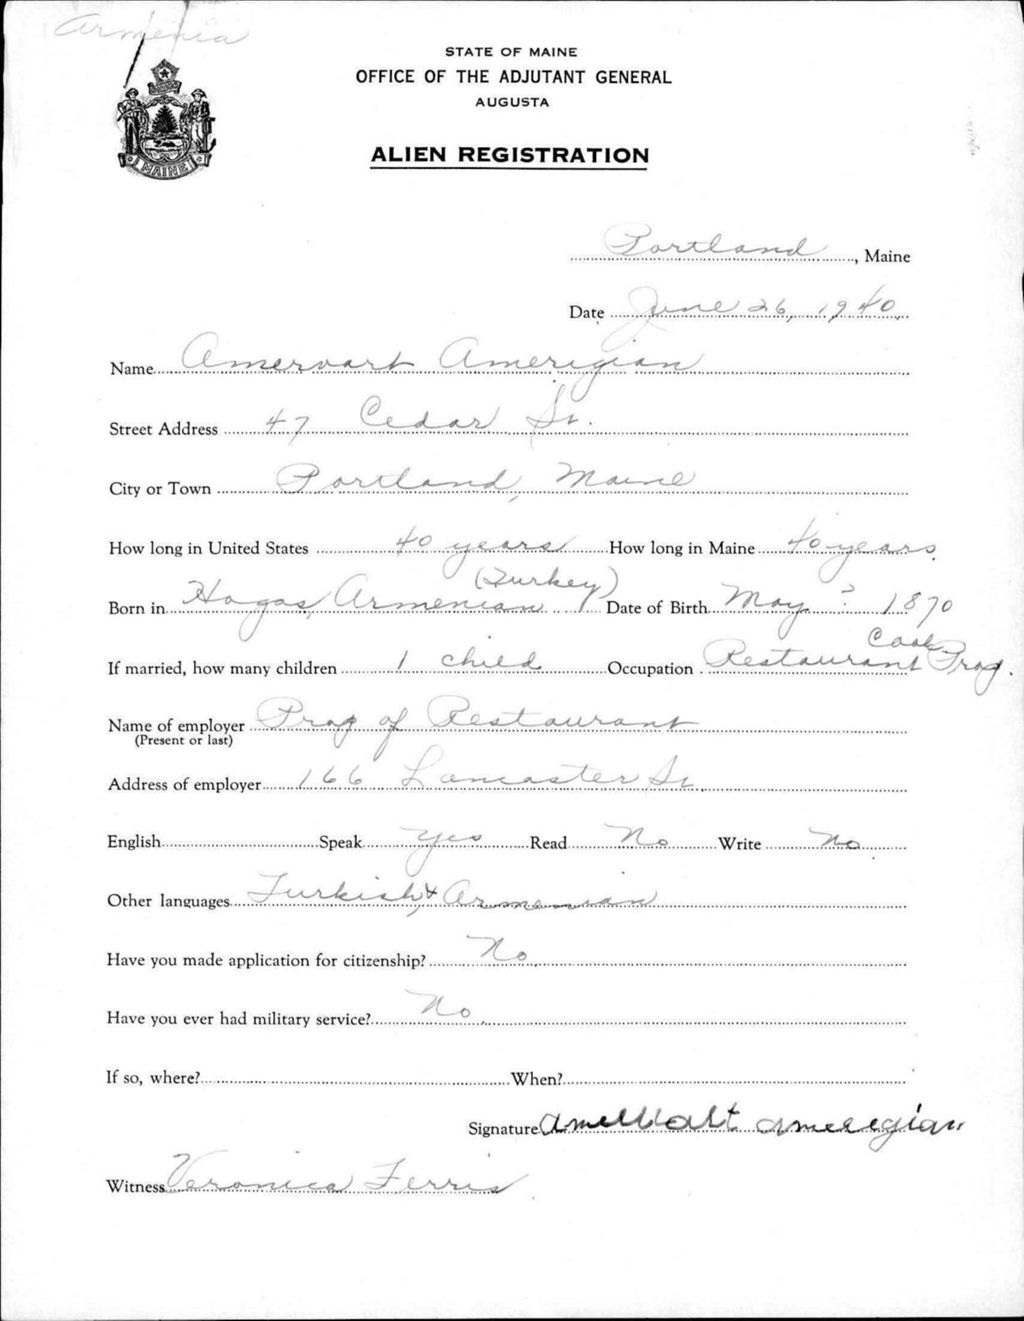 Armenia
STATE OF MAINE
OFFICE OF THE ADJUTANT GENERAL
AUGUSTA
ALIEN REGISTRATION
MAINE
Portland, Maine
Date June 26, 1940
Name Amervart Amerigian
Street Address 47 Cedar St.
City or Town Portland, Maine
How long in United States 40 years How long in Maine 40 years
(Turkey)
Born in Hogas, Armenian Date of Birth May ? 1870
Cook
If married, how many children 1 child Occupation Restaurant Prop.
Name of employer Prop of Restaurant
(Present or last)
Address of employer 166 Lancaster St.
English Speak Yes Read No Write No
Other languages Turkish, & Armenian
Have you made application for citizenship? No
Have you ever had military service? No
If so, where? When?
Signature Amervart Amerigian
Witness Veronica Ferris